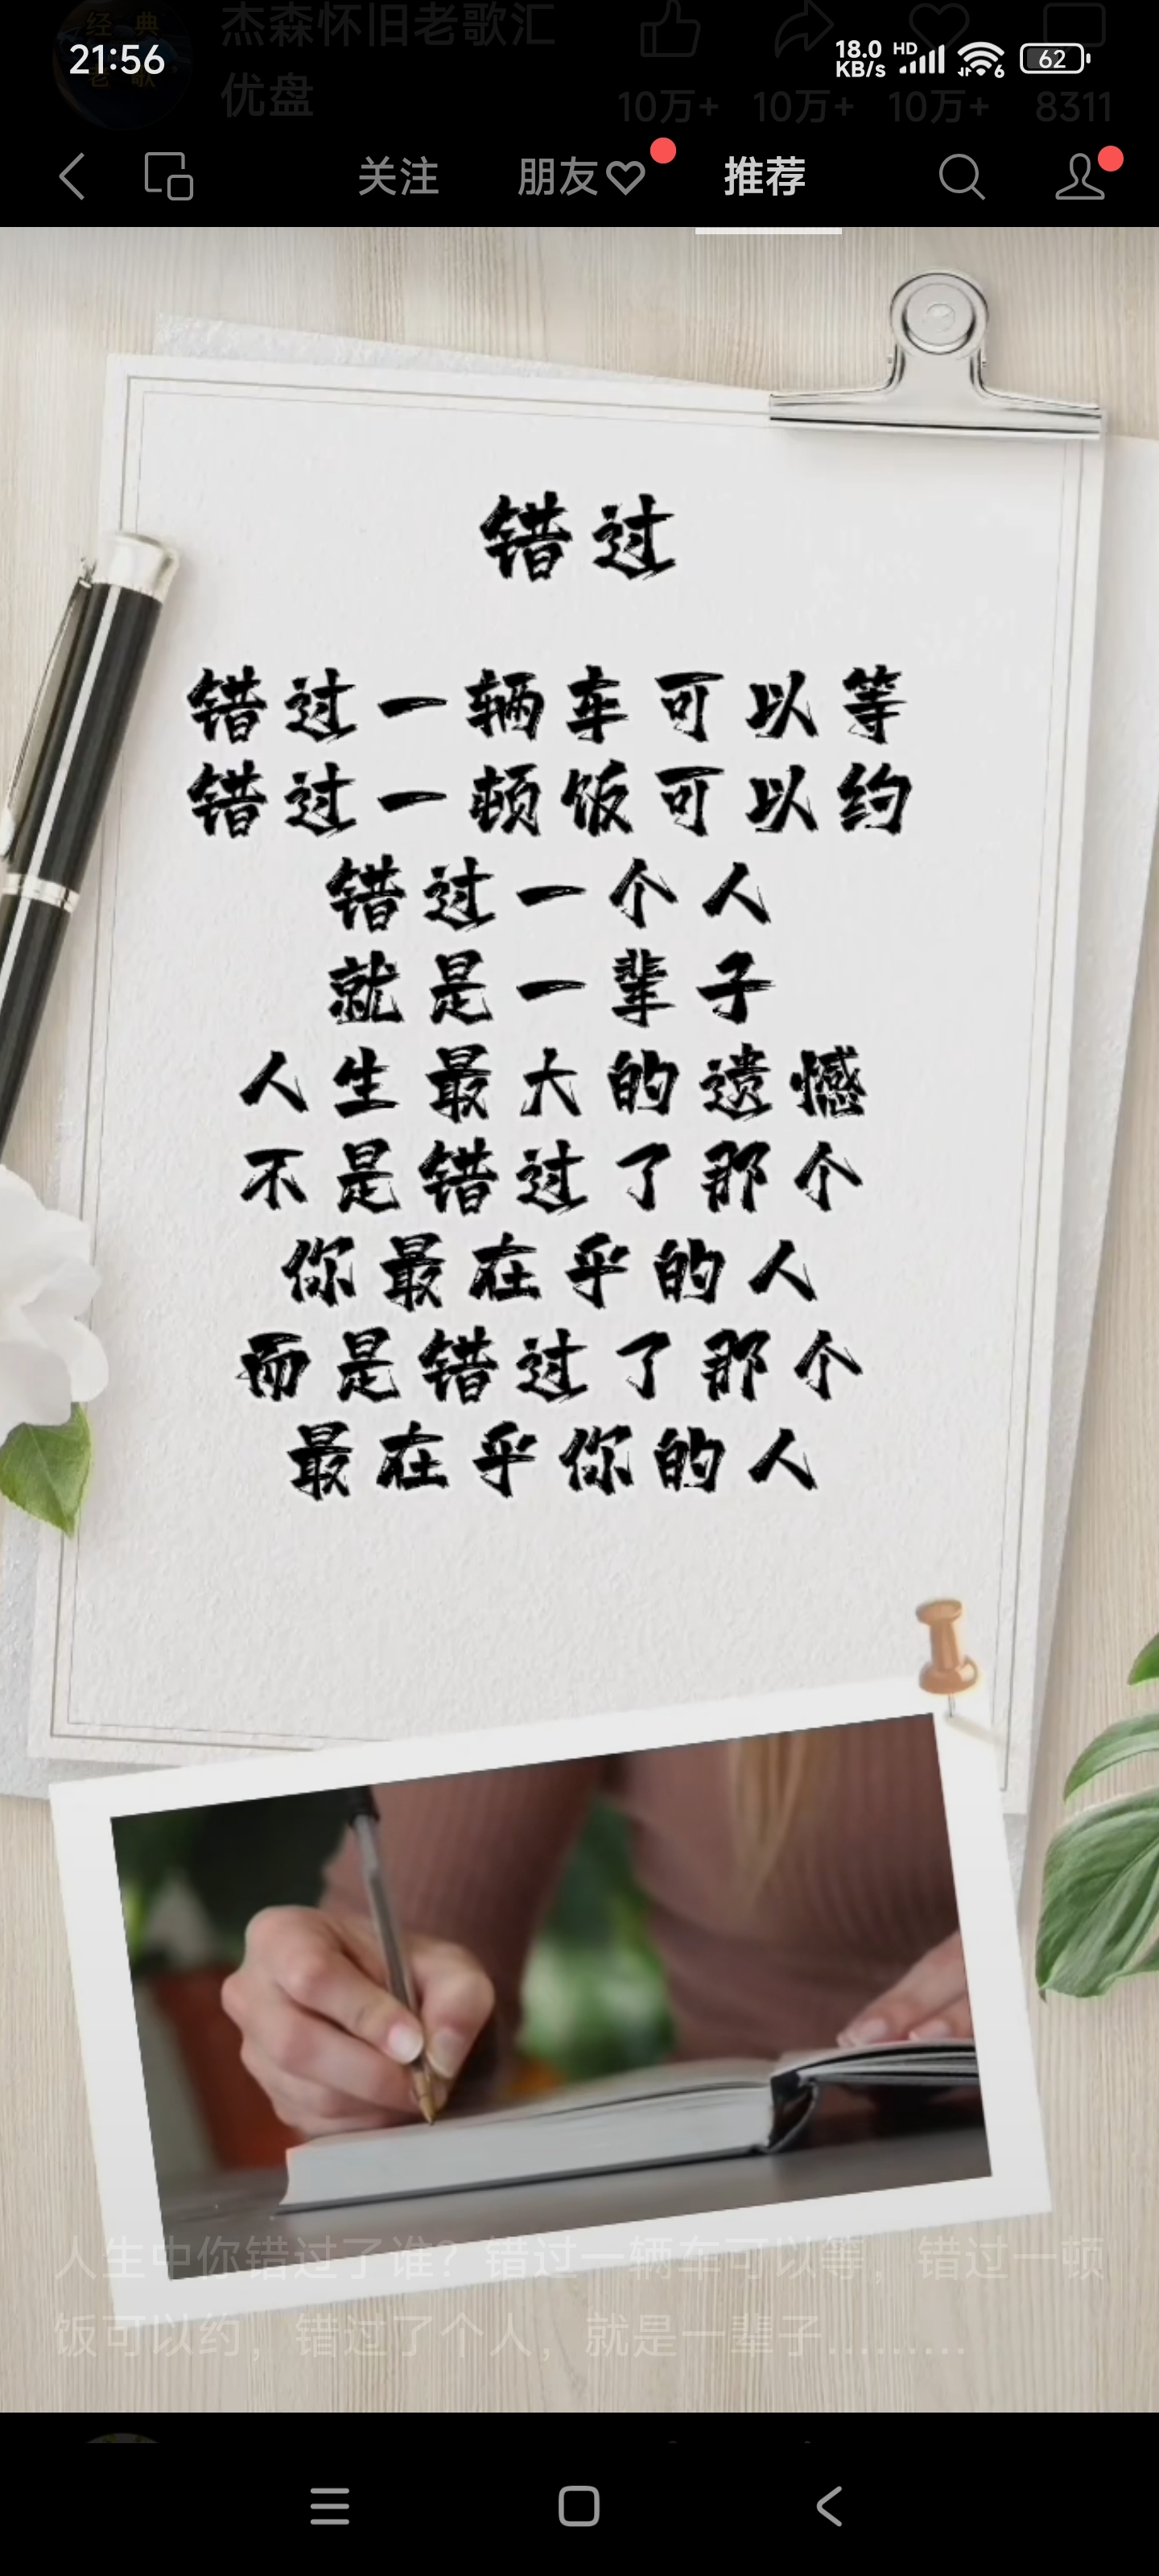 经典
老歌
杰森怀旧老歌汇
优盘
10万+ 10万+ 10万+ 8311
21:56
18.0 KB/s HD 6 62
关注 朋友 推荐
错过
错过一辆车可以等
错过一顿饭可以约
错过一个人
就是一辈子
人生最大的遗憾
不是错过了那个
你最在乎的人
而是错过了那个
最在乎你的人
人生中你错过了谁？错过一辆车可以等，错过一顿
饭可以约，错过了个人，就是一辈子………